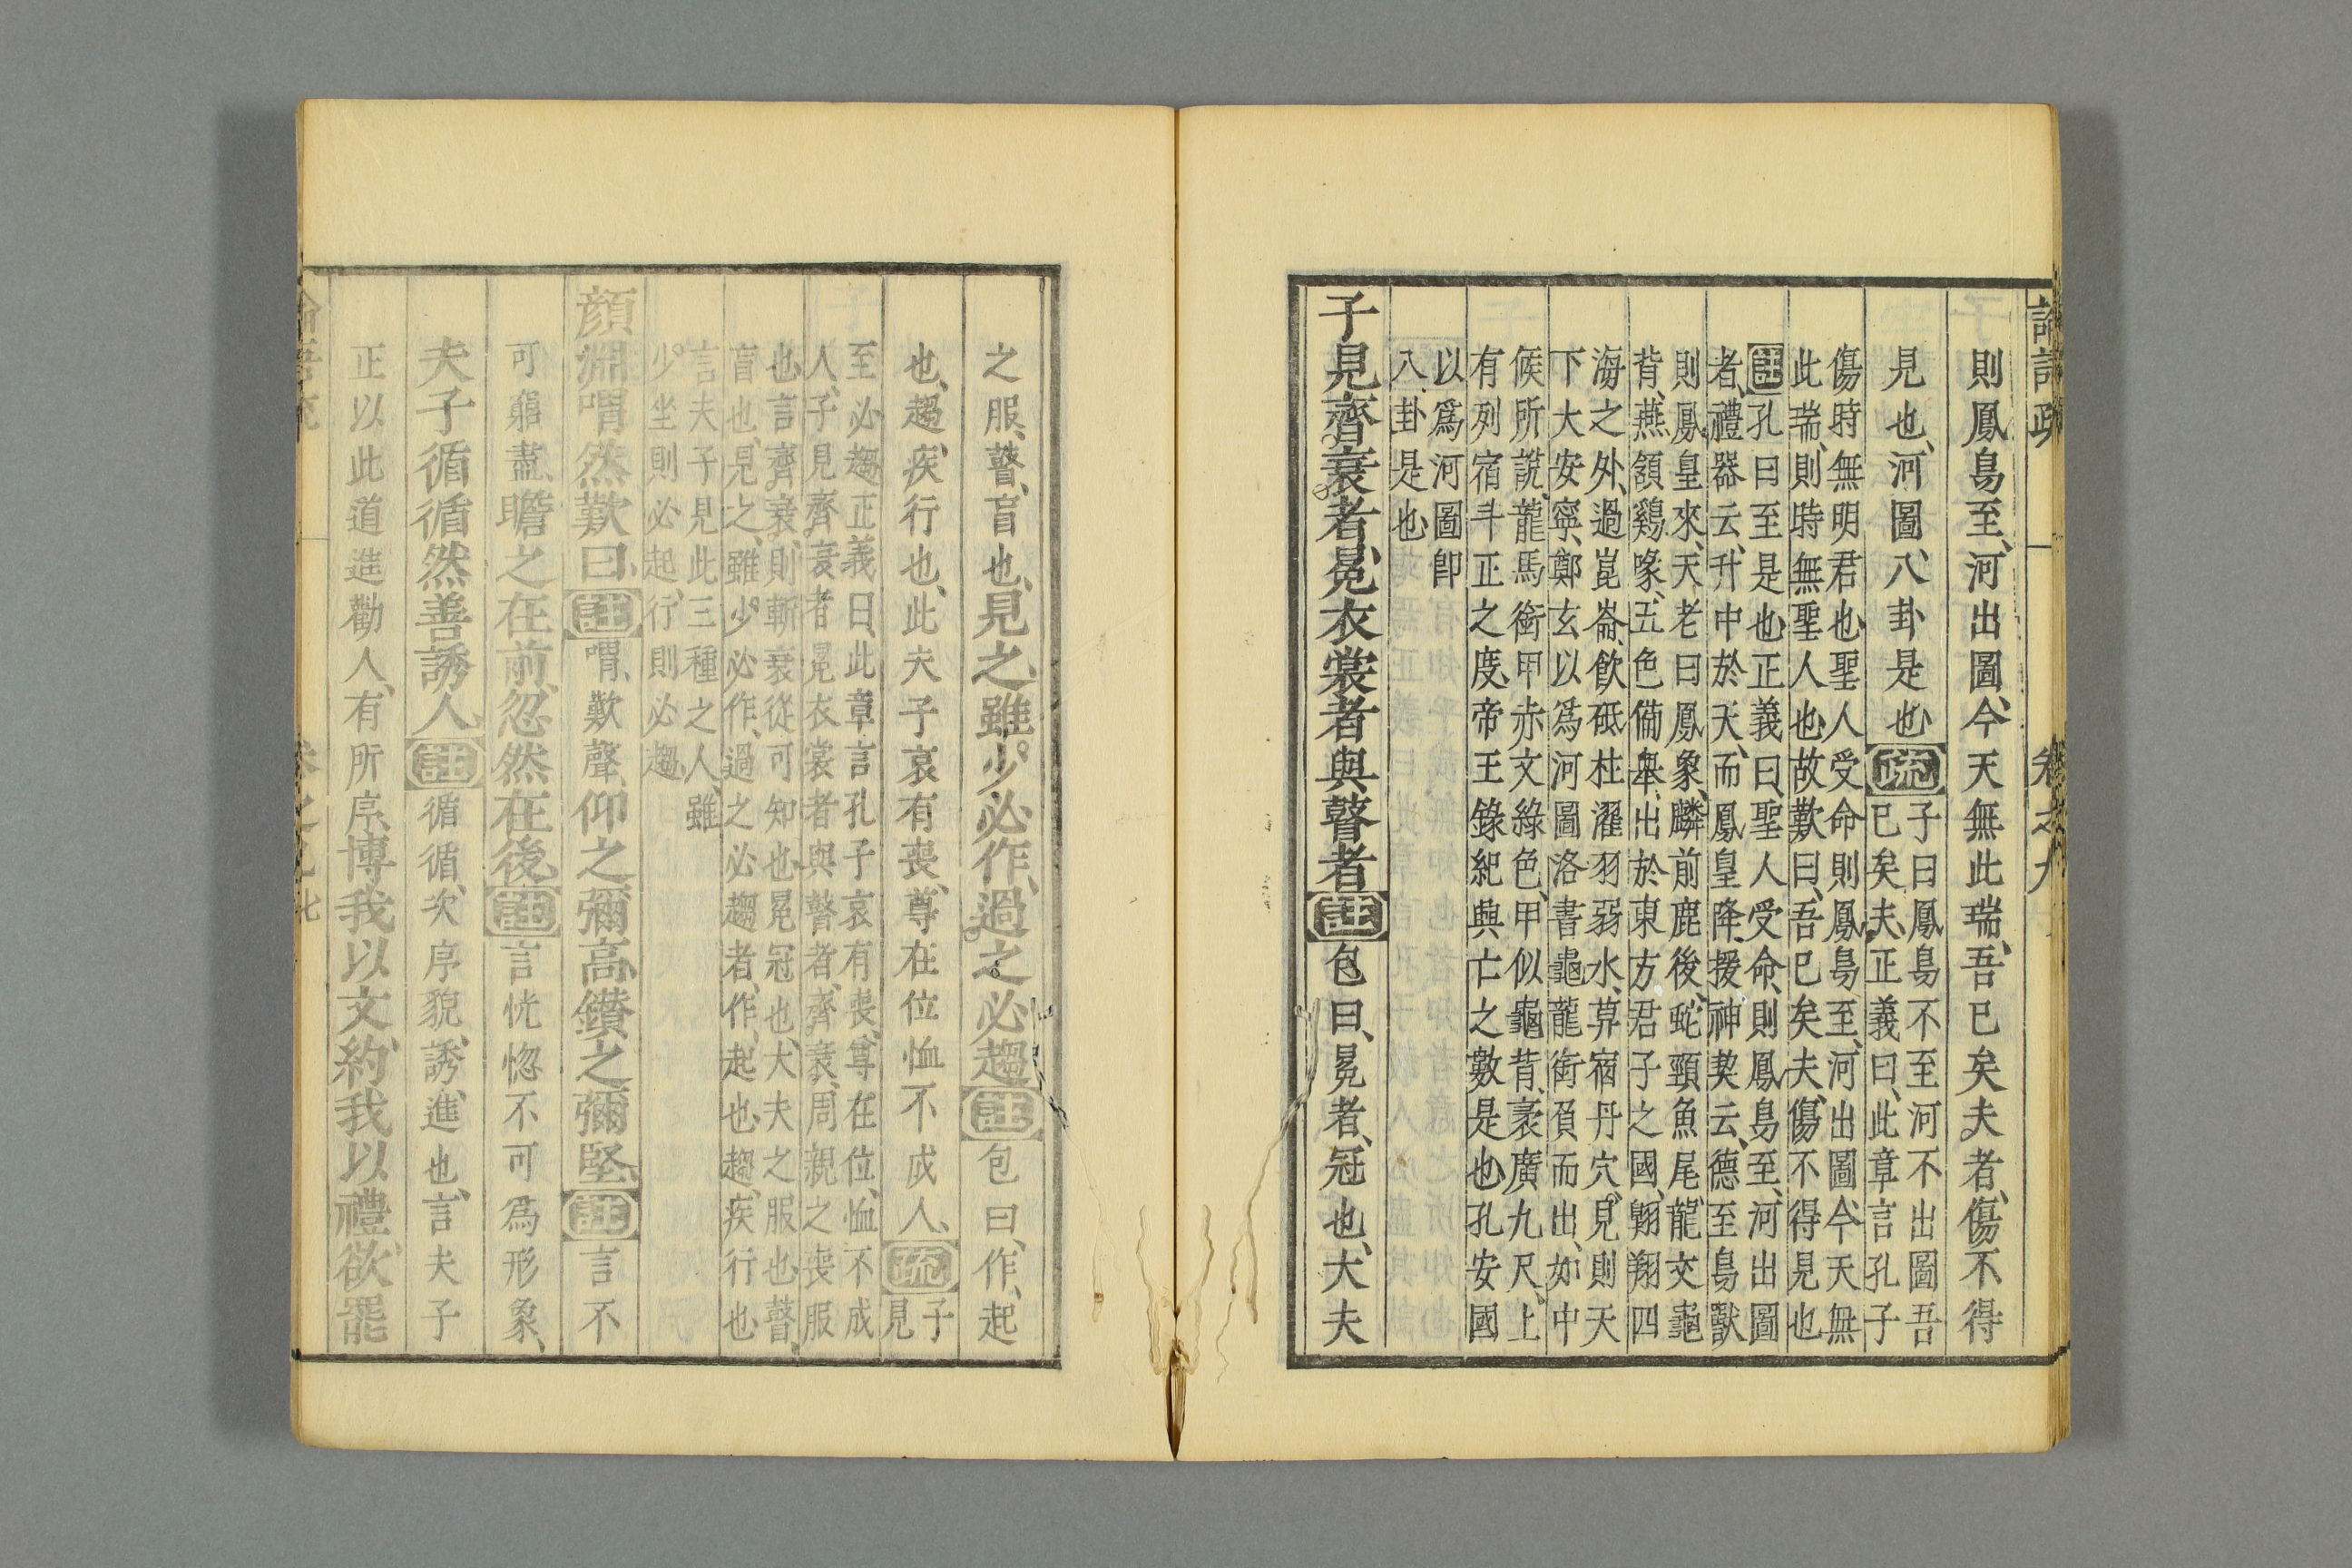 語疏
卷之九
則鳳鳥至、河出圖、今天無此瑞、吾已矣夫者、傷不得
見也、河圖、八卦是也、疏
子曰鳳鳥不至河不出圖吾
已矣夫、正義曰、此章言孔子
傷時無明君也、聖人受命則鳳鳥至、河出圖、今天無
此瑞、則時無聖人也、故歎曰、吾已矣夫、傷不得見也、
註孔曰至是也、正義曰、聖人受命、則鳳鳥至、河出圖
者、禮器云、升中於天、而鳳皇降、援神契云、德至鳥獸
則鳳皇來、天老曰鳳象、麟前鹿後、蛇頸魚尾、龍文龜
背、燕頷雞喙、五色備舉、出於東方君子之國、翺翔四
海之外、過崑崙、飮砥柱濯羽弱水、莫宿丹穴、見則天
下大安寧、鄭玄以爲河圖洛書龜龍銜負而出、如中
候所說、龍馬銜甲赤文綠色、甲似龜背、袤廣九尺、上
有列宿斗正之度、帝王錄紀興亡之數是也、孔安國
以爲河圖卽
八卦是也
子見齊衰者、冕衣裳者與瞽者、註包曰、冕者、冠也、大夫
之服、瞽、盲也、見之、雖少必作、過之必趨、註包曰、作、起
也、趨、疾行也、此夫子哀有喪、尊在位恤不成人、疏
子見
至必趨正義曰、此章言孔子哀有喪、尊在位、恤不成
人、子見齊衰者冕衣裳者與瞽者、齊衰、周親之喪服
也、言齊衰、則斬衰從可知也、冕冠也、大夫之服也、瞽
盲也、見之、雖少必作、過之必趨者、作、起也、趨、疾行也
言夫子見此三種之人、雖
少坐則必起、行則必趨
顏淵喟然歎曰、註喟、歎聲、仰之彌高、鑽之彌堅、註言不
可窮盡、瞻之在前、忽然在後、註言恍惚不可爲形象、
夫子循循然善誘人、註循循、次序貌、誘、進也、言夫子
正以此道進勸人、有所序、博我以文、約我以禮、欲罷